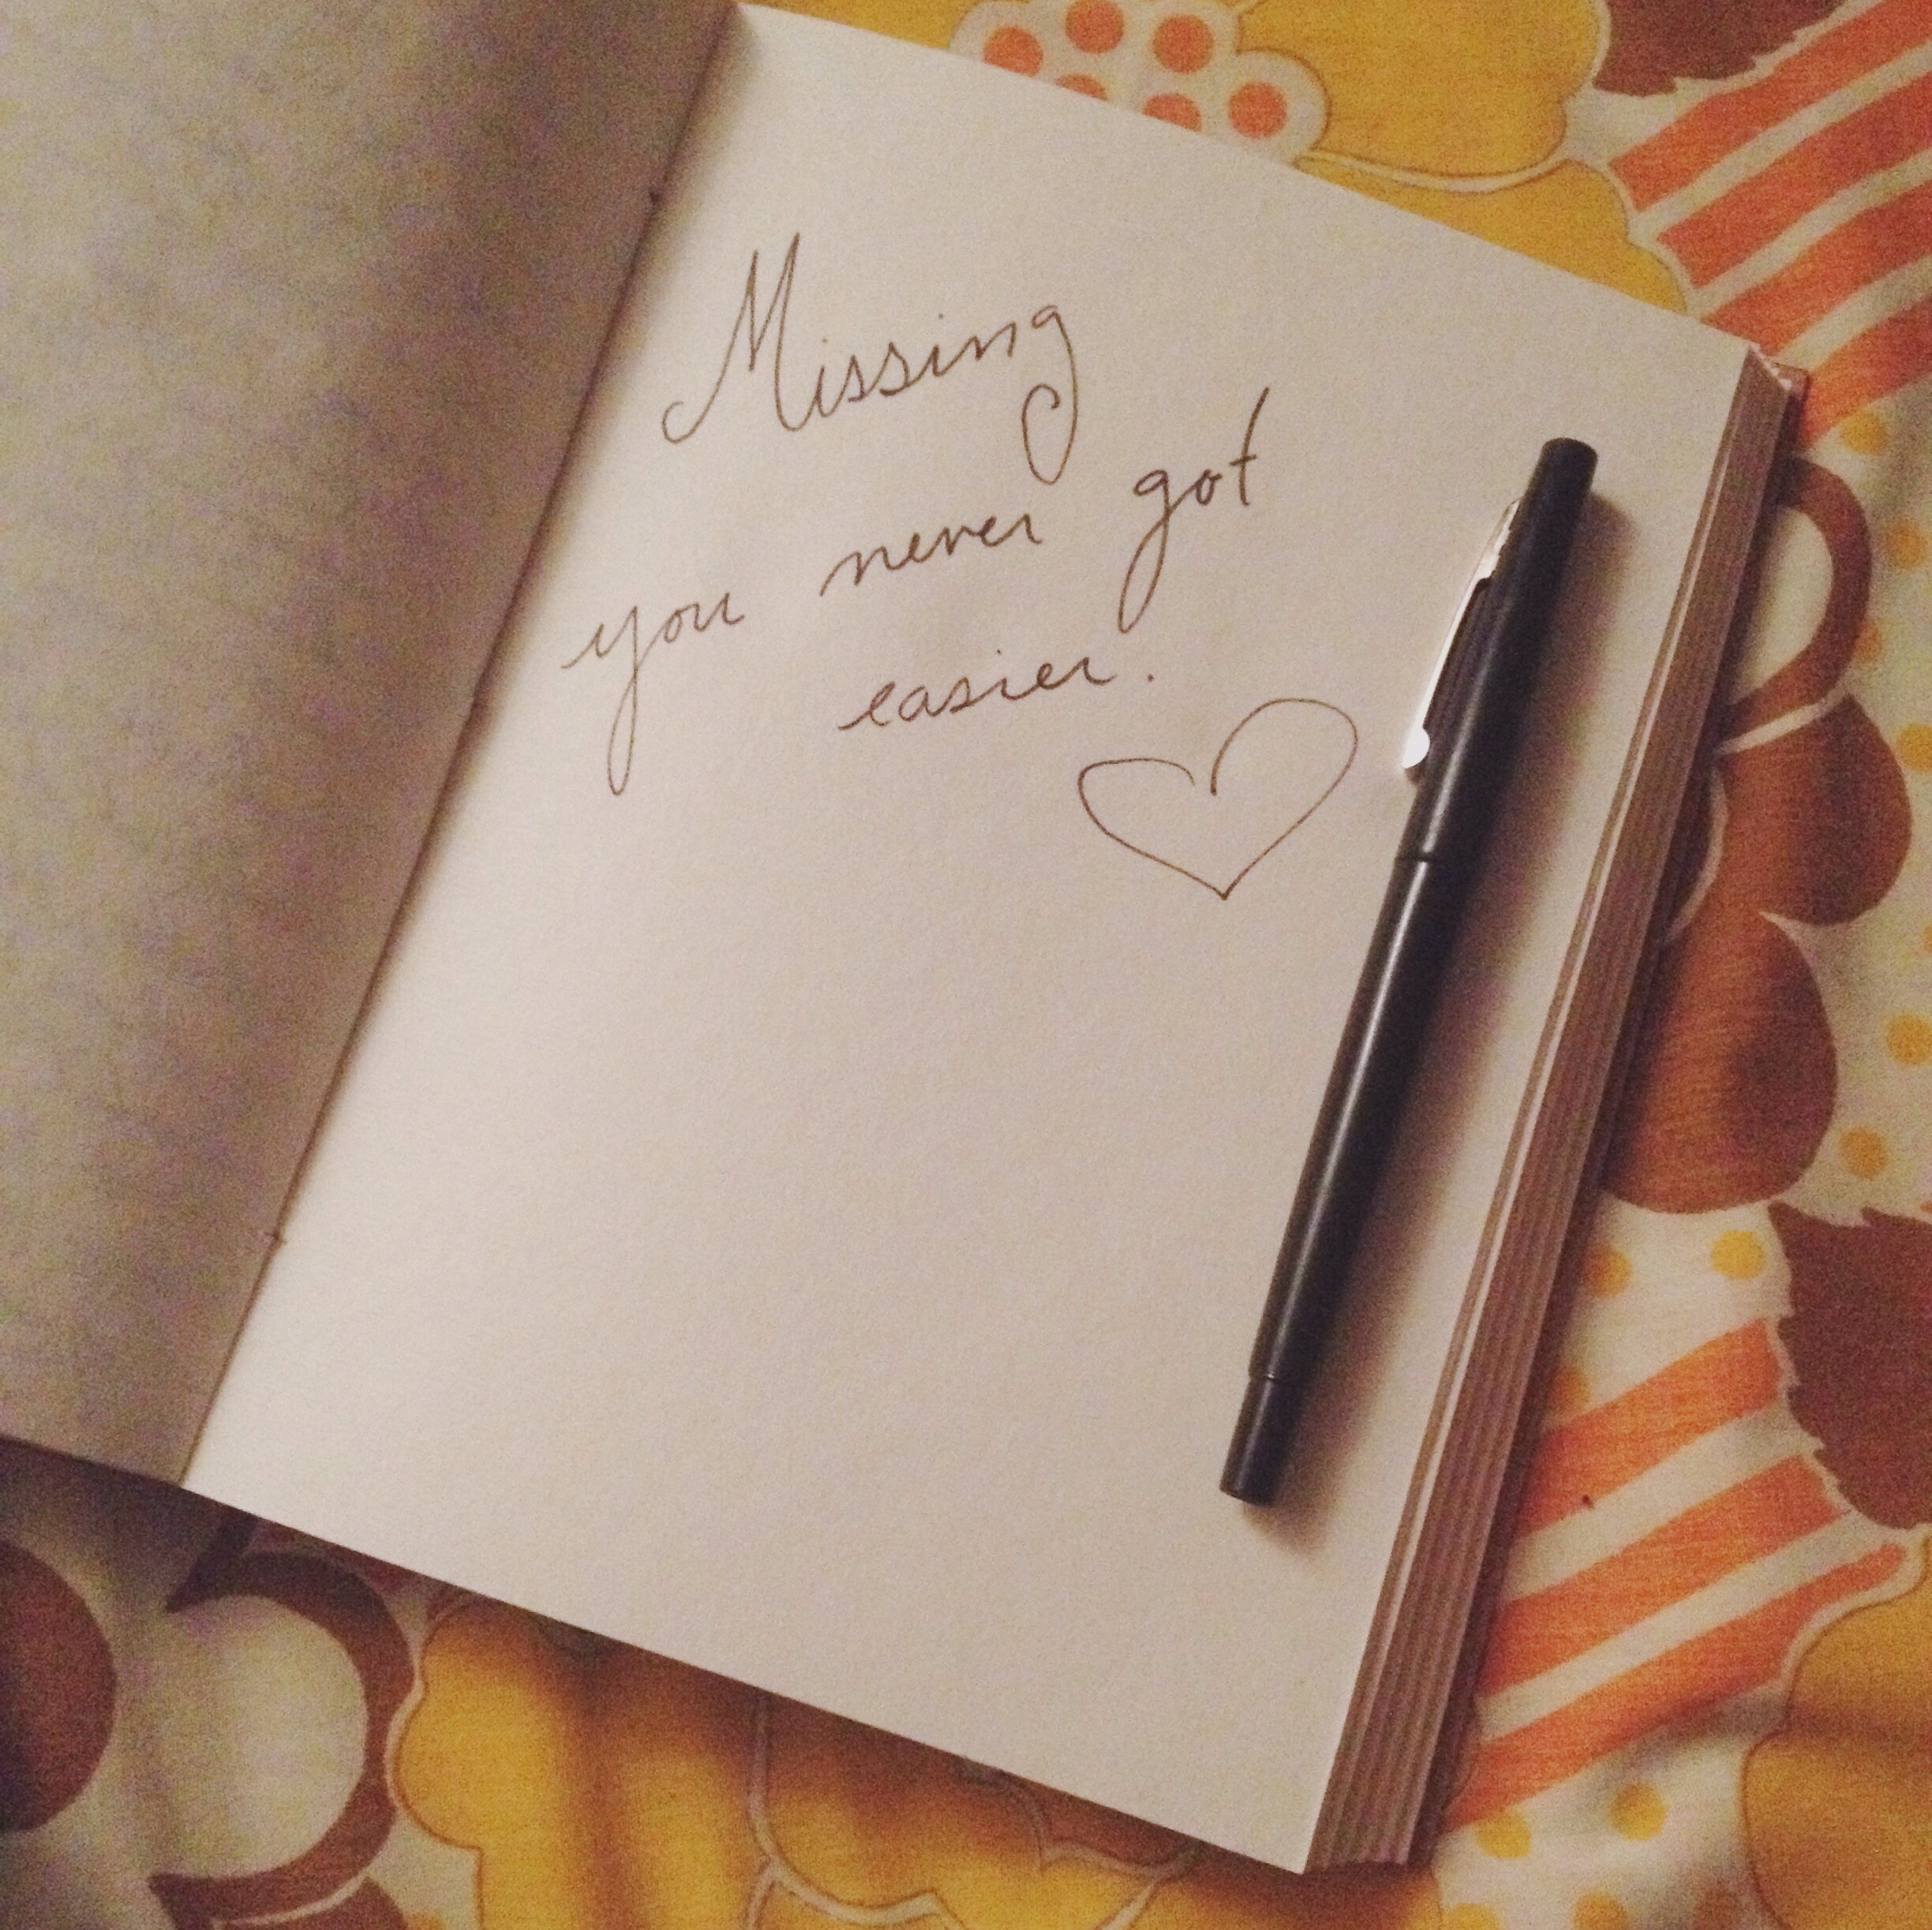 Missing
you never got
easier.